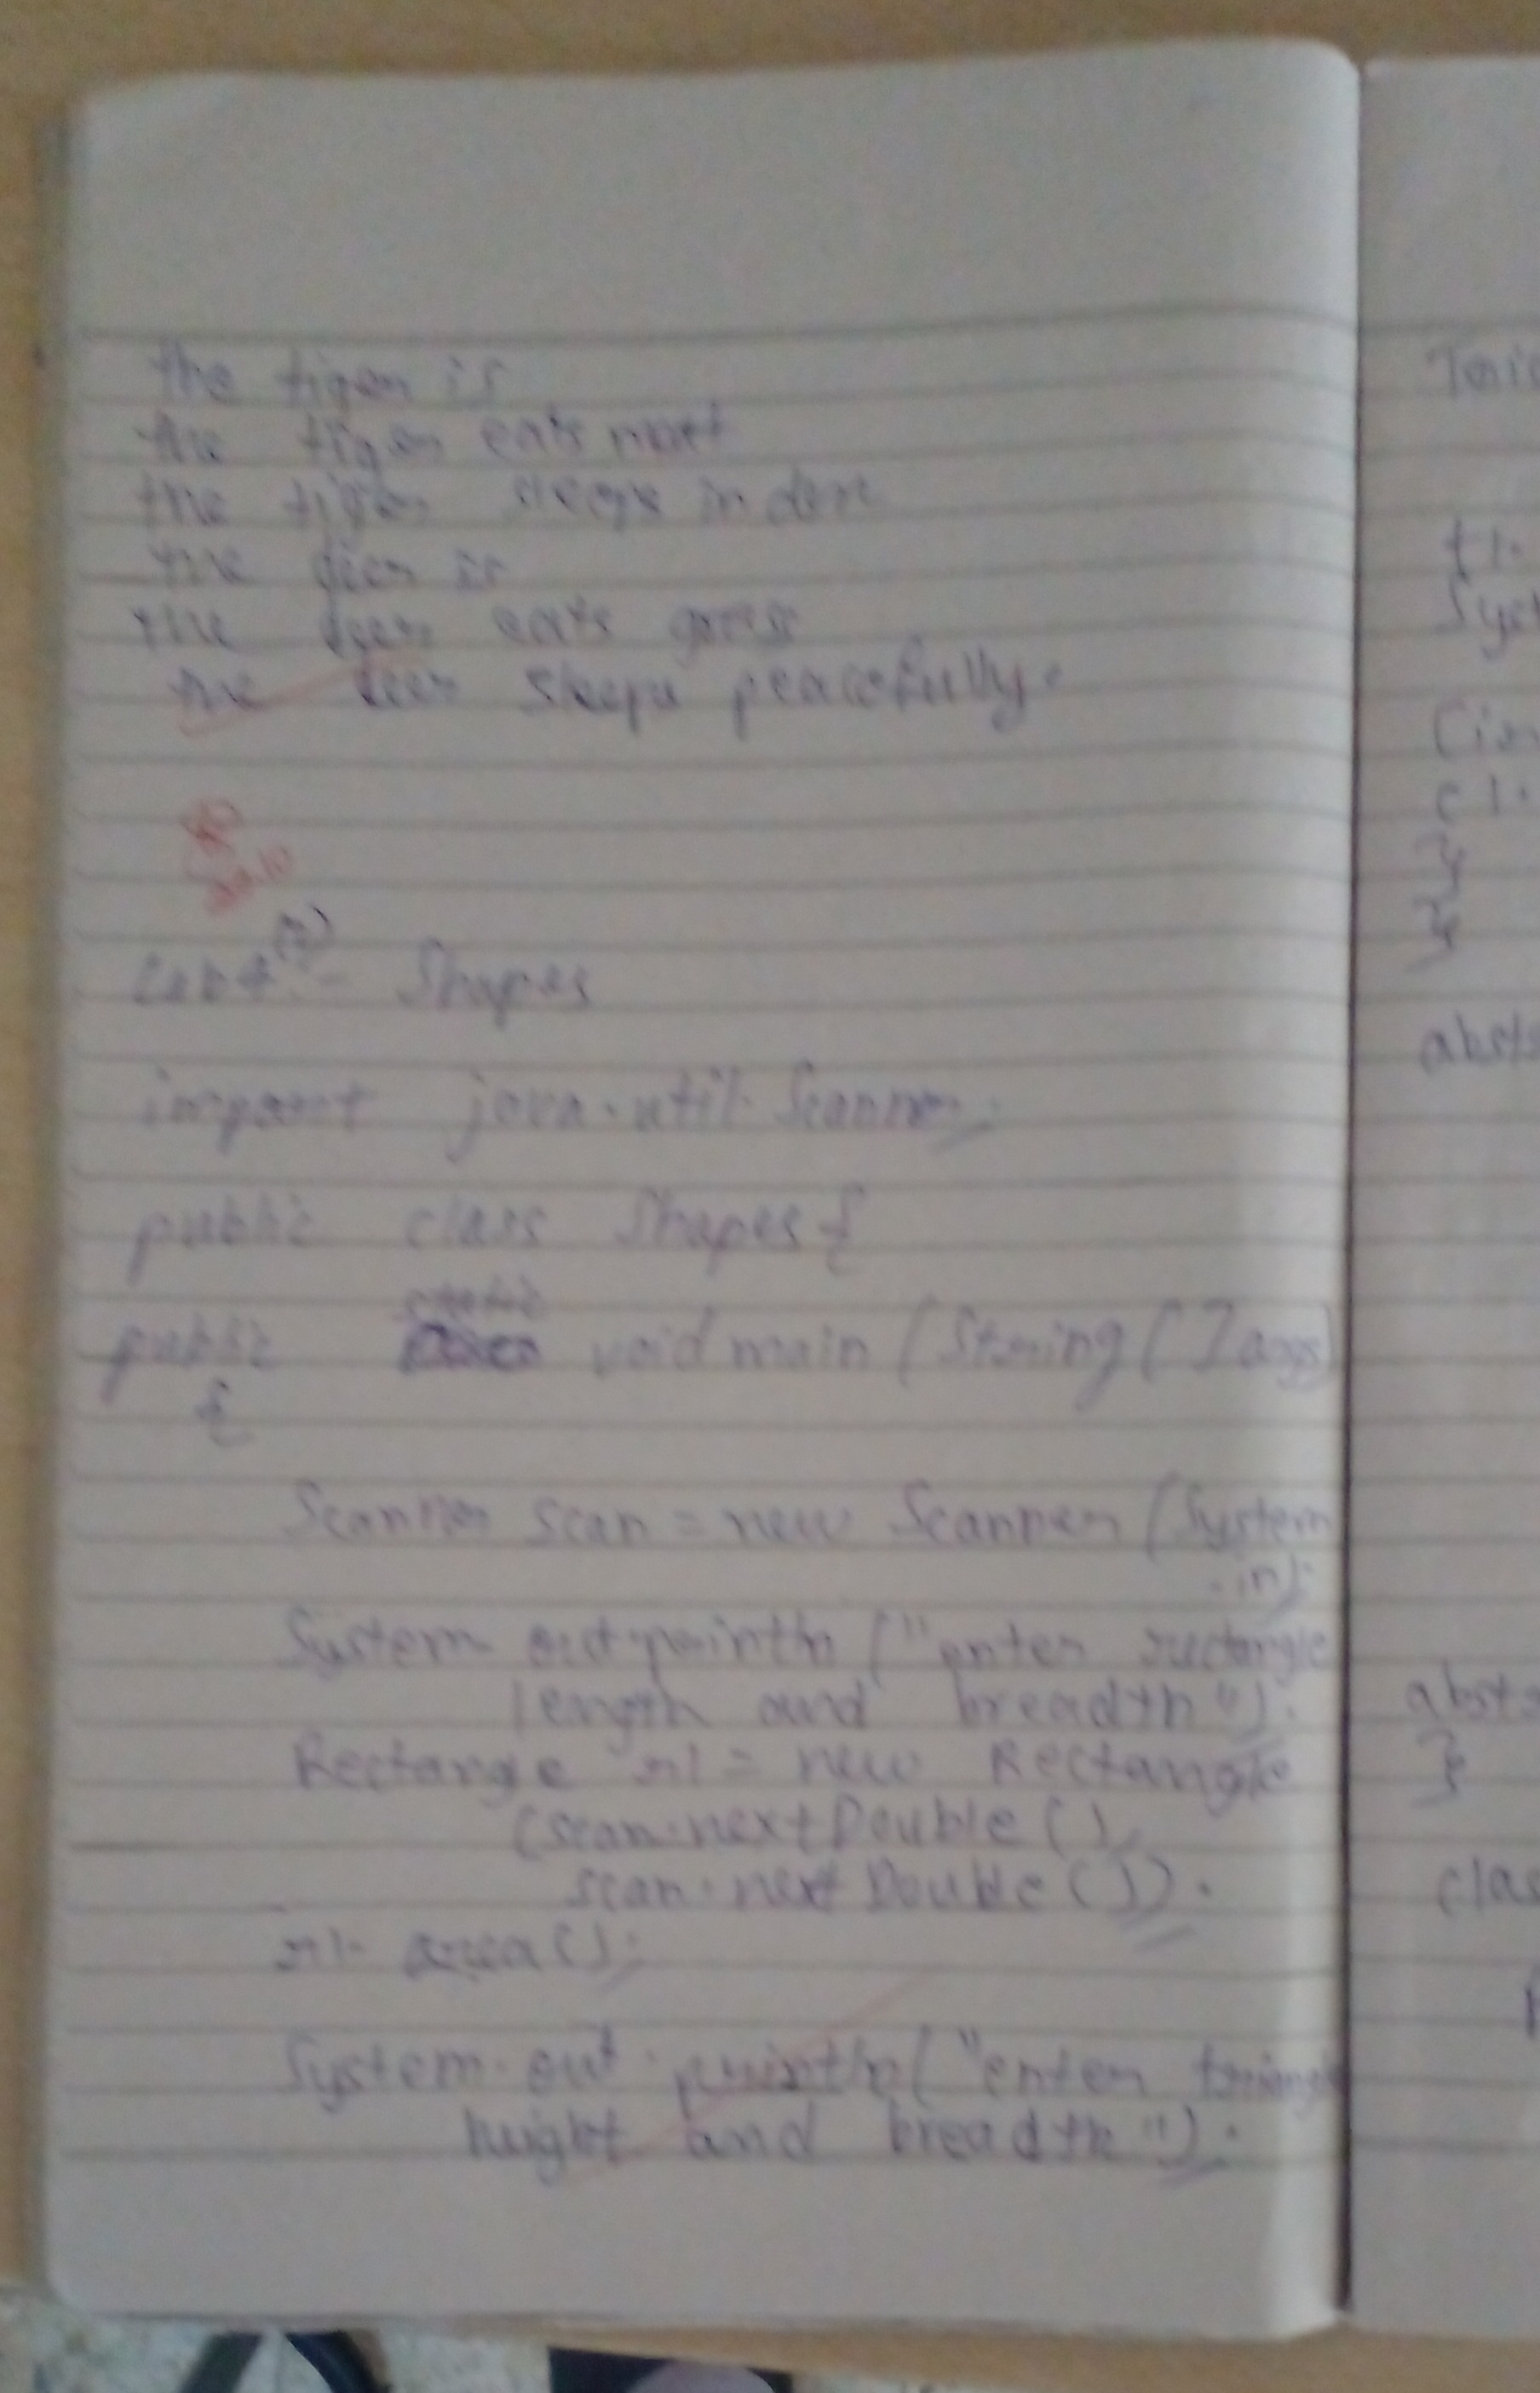 the tiger is
the tiger eats meat
the tiger sleeps in den
the deer is
the deer eats grass
the deer sleeps peacefully.
22.10
Lab 4 - Shapes
import java.util.Scanner;
public class Shapes {
static
public void main (String [] args)
{
Scanner scan = new Scanner (System
.in);
System out.println ("enter rectangle
length and breadth");
Rectange r1 = new Rectangle
(scan.nextDouble (),
scan.nextDouble ());
r1. area ();
System.out.println ("enter triangle
height and breadth");
t1.
}
}
}